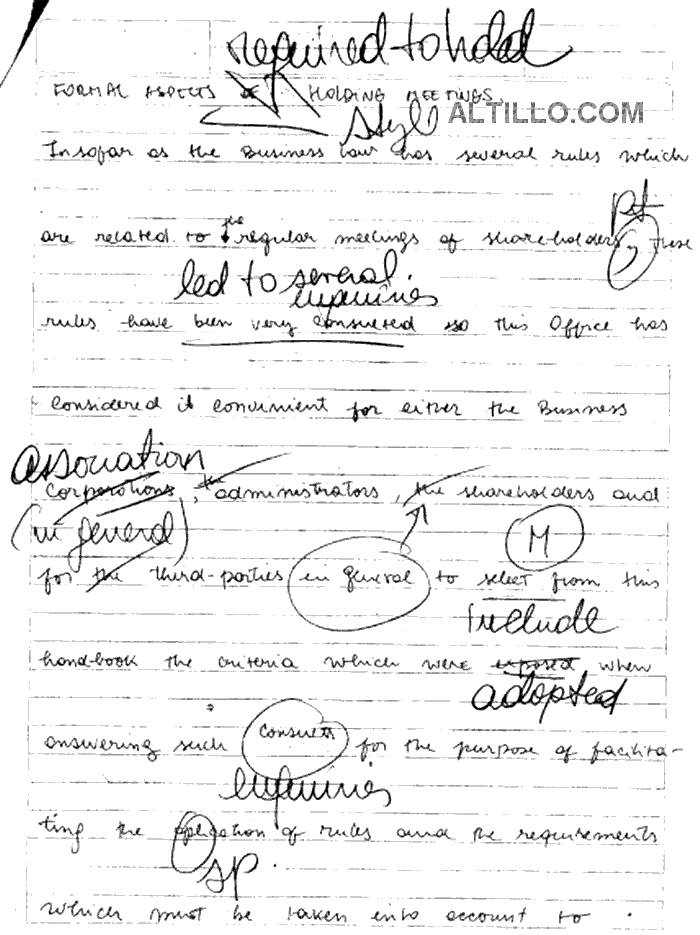 required to hold
FORMAL ASPECTS OF HOLDING MEETINGS.
style ALTILLO.COM
Insofar as the Business Law has several rules which
pt
are related to the regular meetings of share-holders, these
led to several
inquiries
rules have been very consulted so this Office has
considered it convinient for either the Business
association
corporations, the administrators, the shareholders and
(in general) M
for the third-parties in general to select from this
include
handbook the criteria which were exposed when
adopted
answering such consults for the purpose of facilita-
inquiries
ting the aplication of rules and the requirements
sp.
which must be taken into account to